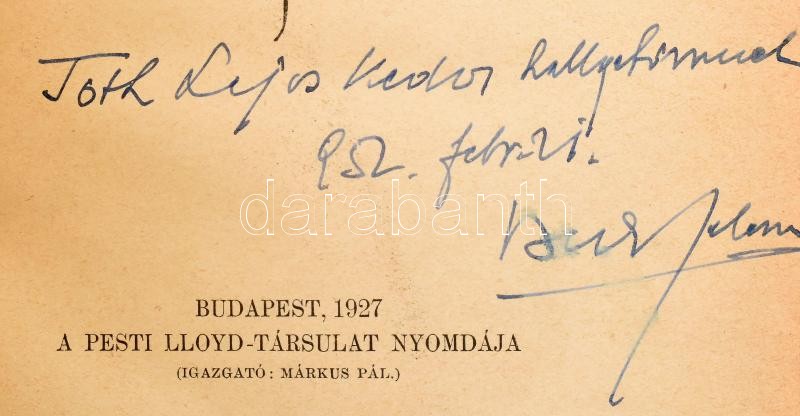 Tóth Lajos Kedves hallgatómnak
952. febr. 21.
darabanth
BUDAPEST, 1927
A PESTI LLOYD-TÁRSULAT NYOMDÁJA
(IGAZGATÓ: MÁRKUS PÁL.)